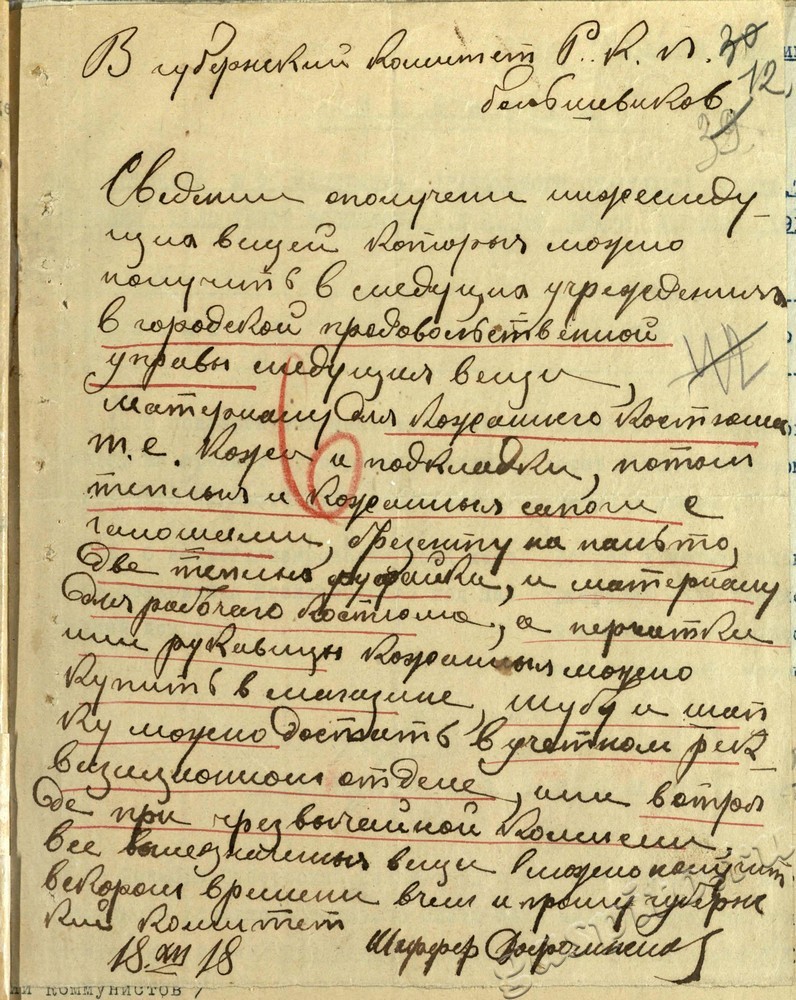 В губернский комитет Р. К. П. 30
большевиков. 12,
39
Сведении ополучени нижеследу-
ищиа вещей которыя можно
получить в следущиа учреждениях
в городской продовольственной
управы следущия вещи,
материалу для кожанаго костюма
т.е. кожи и подкладки, потом
теплыя и кожанныя сапоги с
галошами, брезенту на пальто,
две теплыя фуфайки, и материалу
для рабочаго костюма, а перчатки
или рукавицы кожанныя можно
купить в магазине, шубу и шап
ку можно достать в учетном рек
визиционном отделе, или вотря
де при чрезвычайной комисии.
все вышеозначенныя вещи можно получит
вскором времени вчем и прошу губерн
ский комитет
18 XII 18 Шоффер
ии коммунистов /